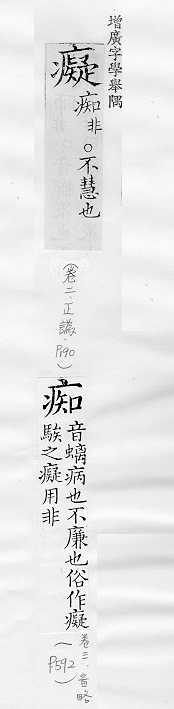 增廣字學舉隅
癡
痴非○不慧也
(卷二.正譌.P190)
痴
音螭病也不廉也俗作癡
騃之癡用非
(卷三.音略P592)